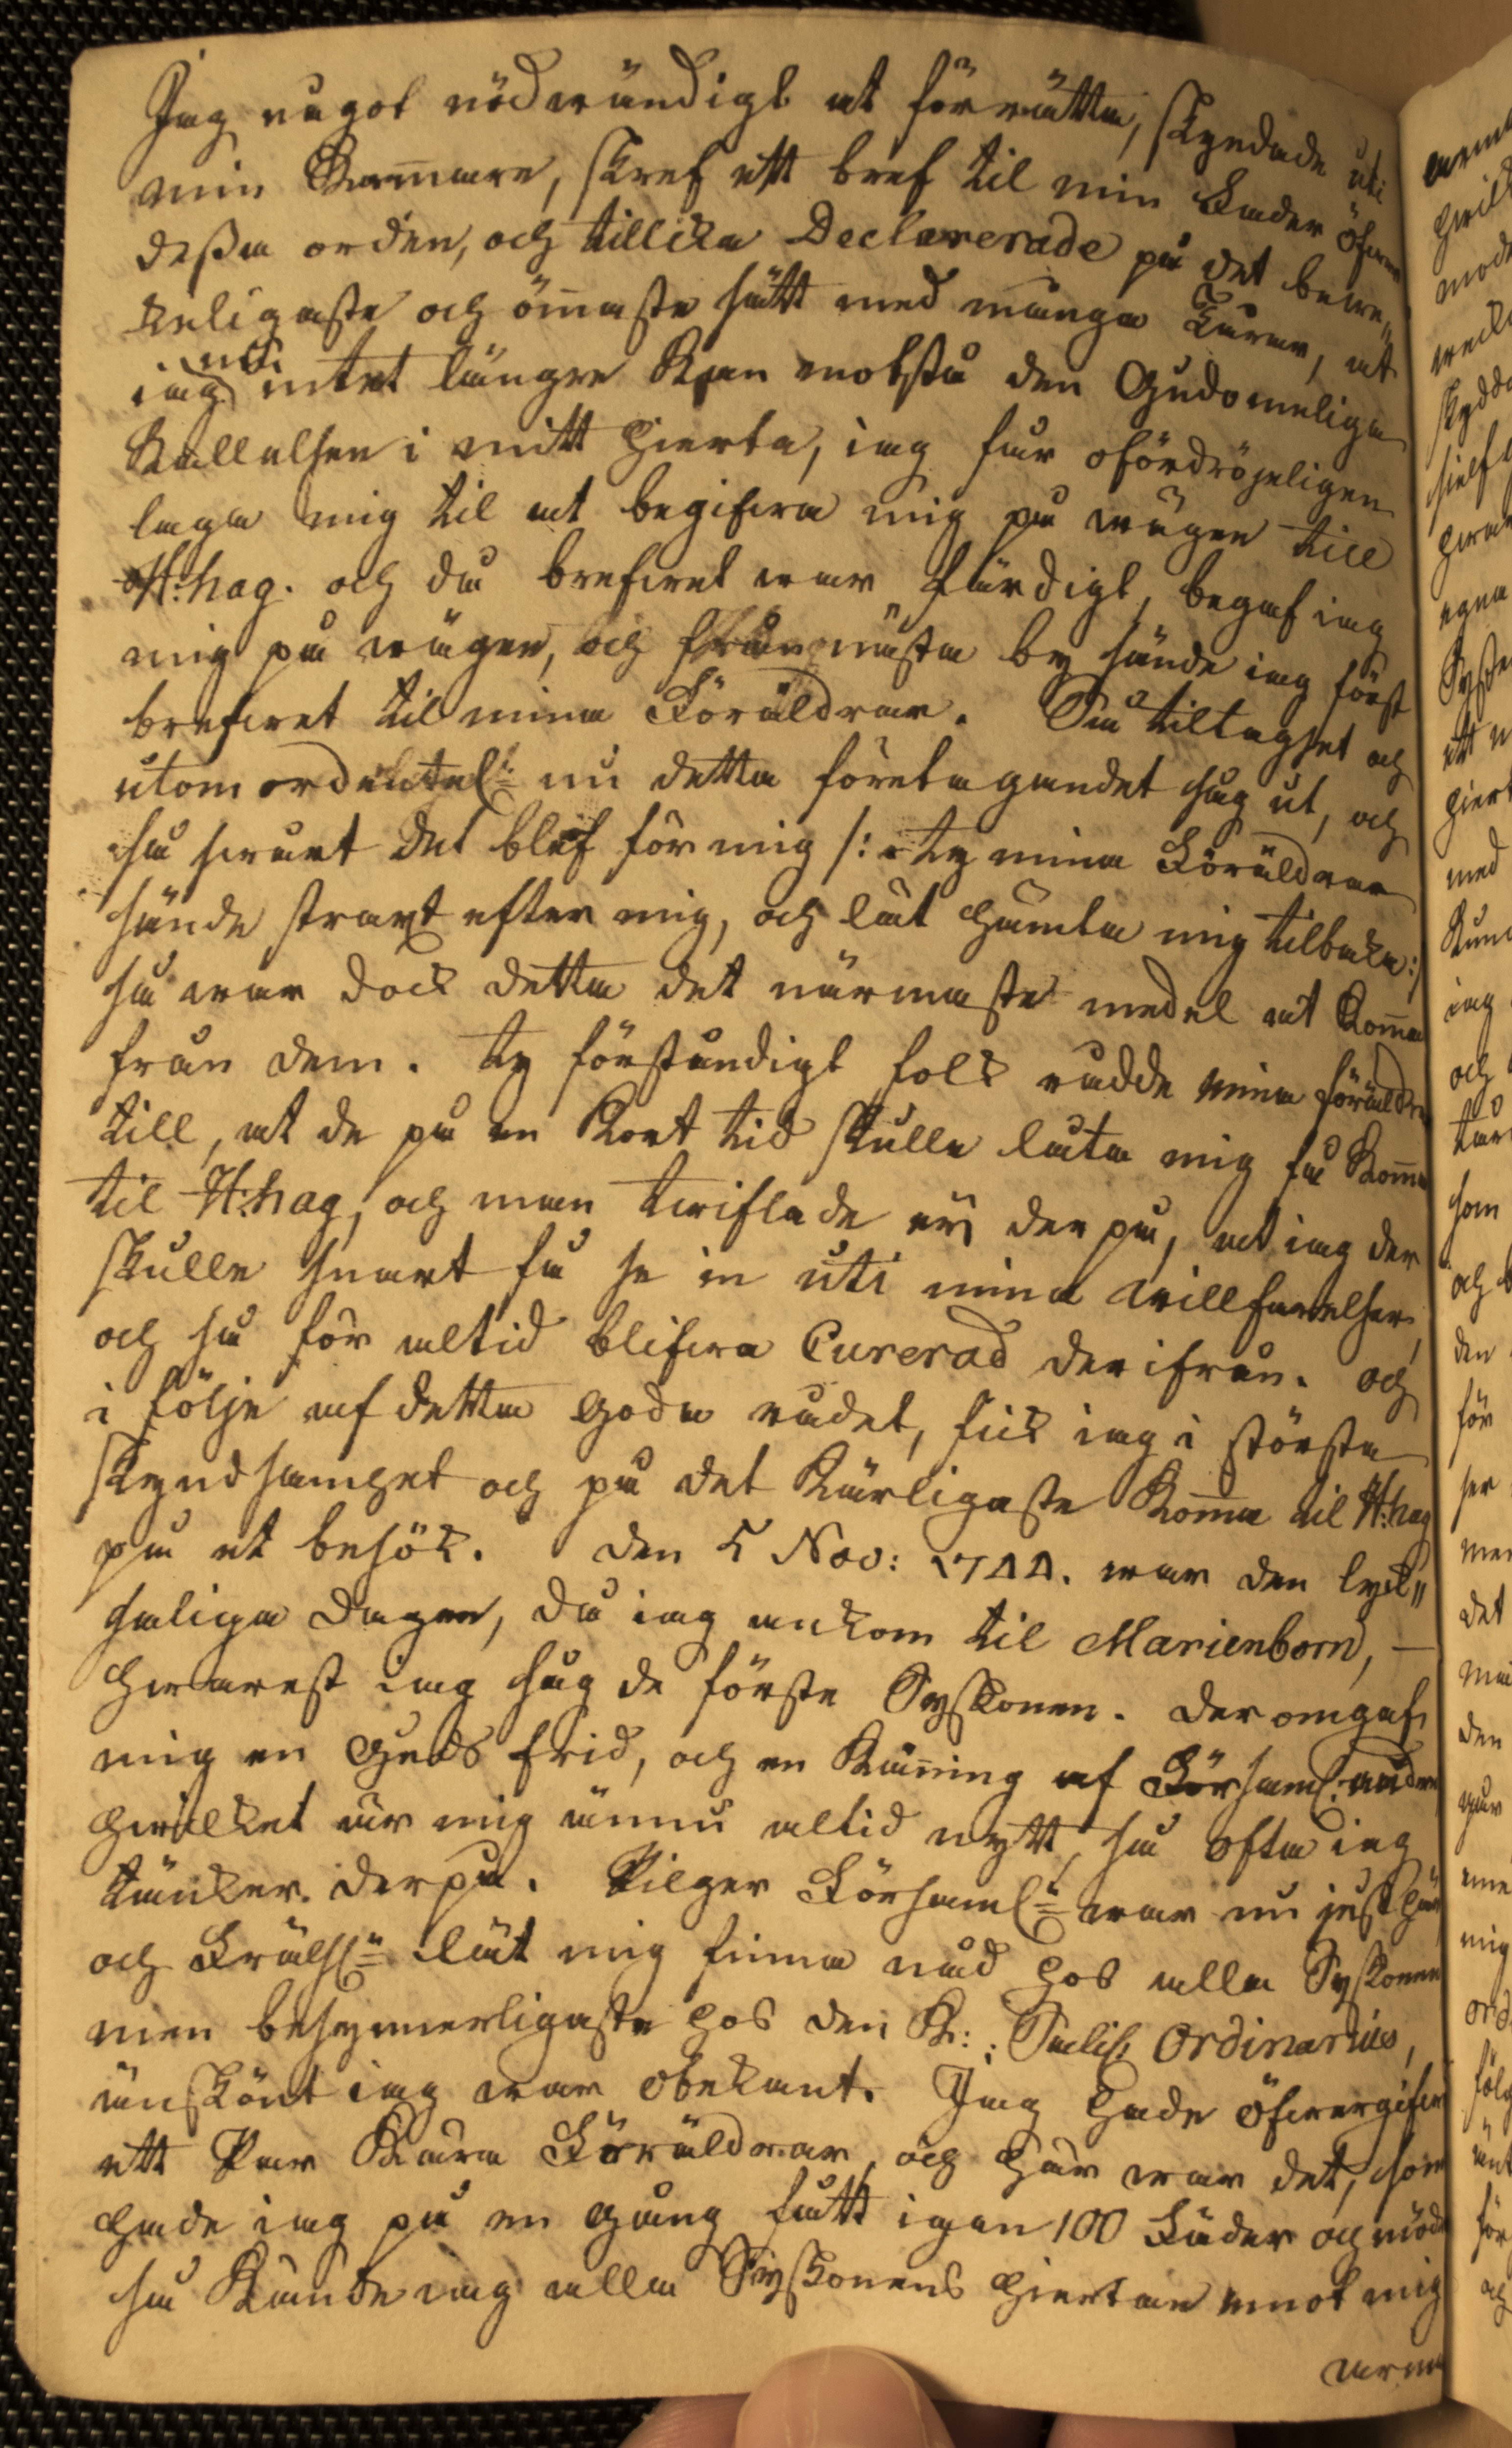 Jag något nödwändigt at förrätta, skyndade uti
min Kam̄are, skref ett bref til min Fader öfwer
deßa orden, och tillika Declarerade på det bewe„
keligaste och öm̄aste sätt med många Tårar, at
iag nu intet längre kan motstå den Gudomeliga
Kallelsen i mitt hierta, iag får ofördröjeligen
laga mig til at begifwa mig på wägen till
H:hag. och då brefwet war färdigt, begaf iag
mig på wägen, och från nästa by sände iag först
brefwet til mina Föräldrar. Så tiltagset och
utomordentel: nu detta företagandet såg ut, och
så swårt det blef för mig /: ty mina Föräldrar
sände straxt efter mig, och lät hämta mig tilbaka:/
så war dock detta det närmaste medel at kom̄a
från dem. ty förståndigt folk rådde mina föräldrar
till, at de på en kort tid skulle låta mig få kom̄a
til H:hag, och man twiflade ej der på, at iag der
skulle snart få se in uti mina willfarelser,
och så för altid blifwa Curerad derifrån. och
i följe af detta goda rådet, fick iag i största
skyndsamhet och på det kärligaste kom̄a til H:hag
på et besök. den 5 Nov: 1744. war den lyck„
saliga dagen, då iag ankom til Marienborn, —
hwarest iag såg de förste Syskonen. der omgaf
mig en Guds frid, och en Kän̄ing af Församl:
hwilket är mig ännu altid nytt, så ofta iag
tänker derpå. Pilger Församl: war nu just här
och Frälsn: lät mig finna nåd hos alla Syskonen
men besynnerligaste hos den K: Salig Ordinarius,
änskönt iag war obekant. Jag hade öfwergifwit
ett Par Kära Föräldrar, och här war det, som
hade iag på en gång fått igen 100 Fäder och mödr
så kände iag alla Syskonens hiertan emot mig
warma